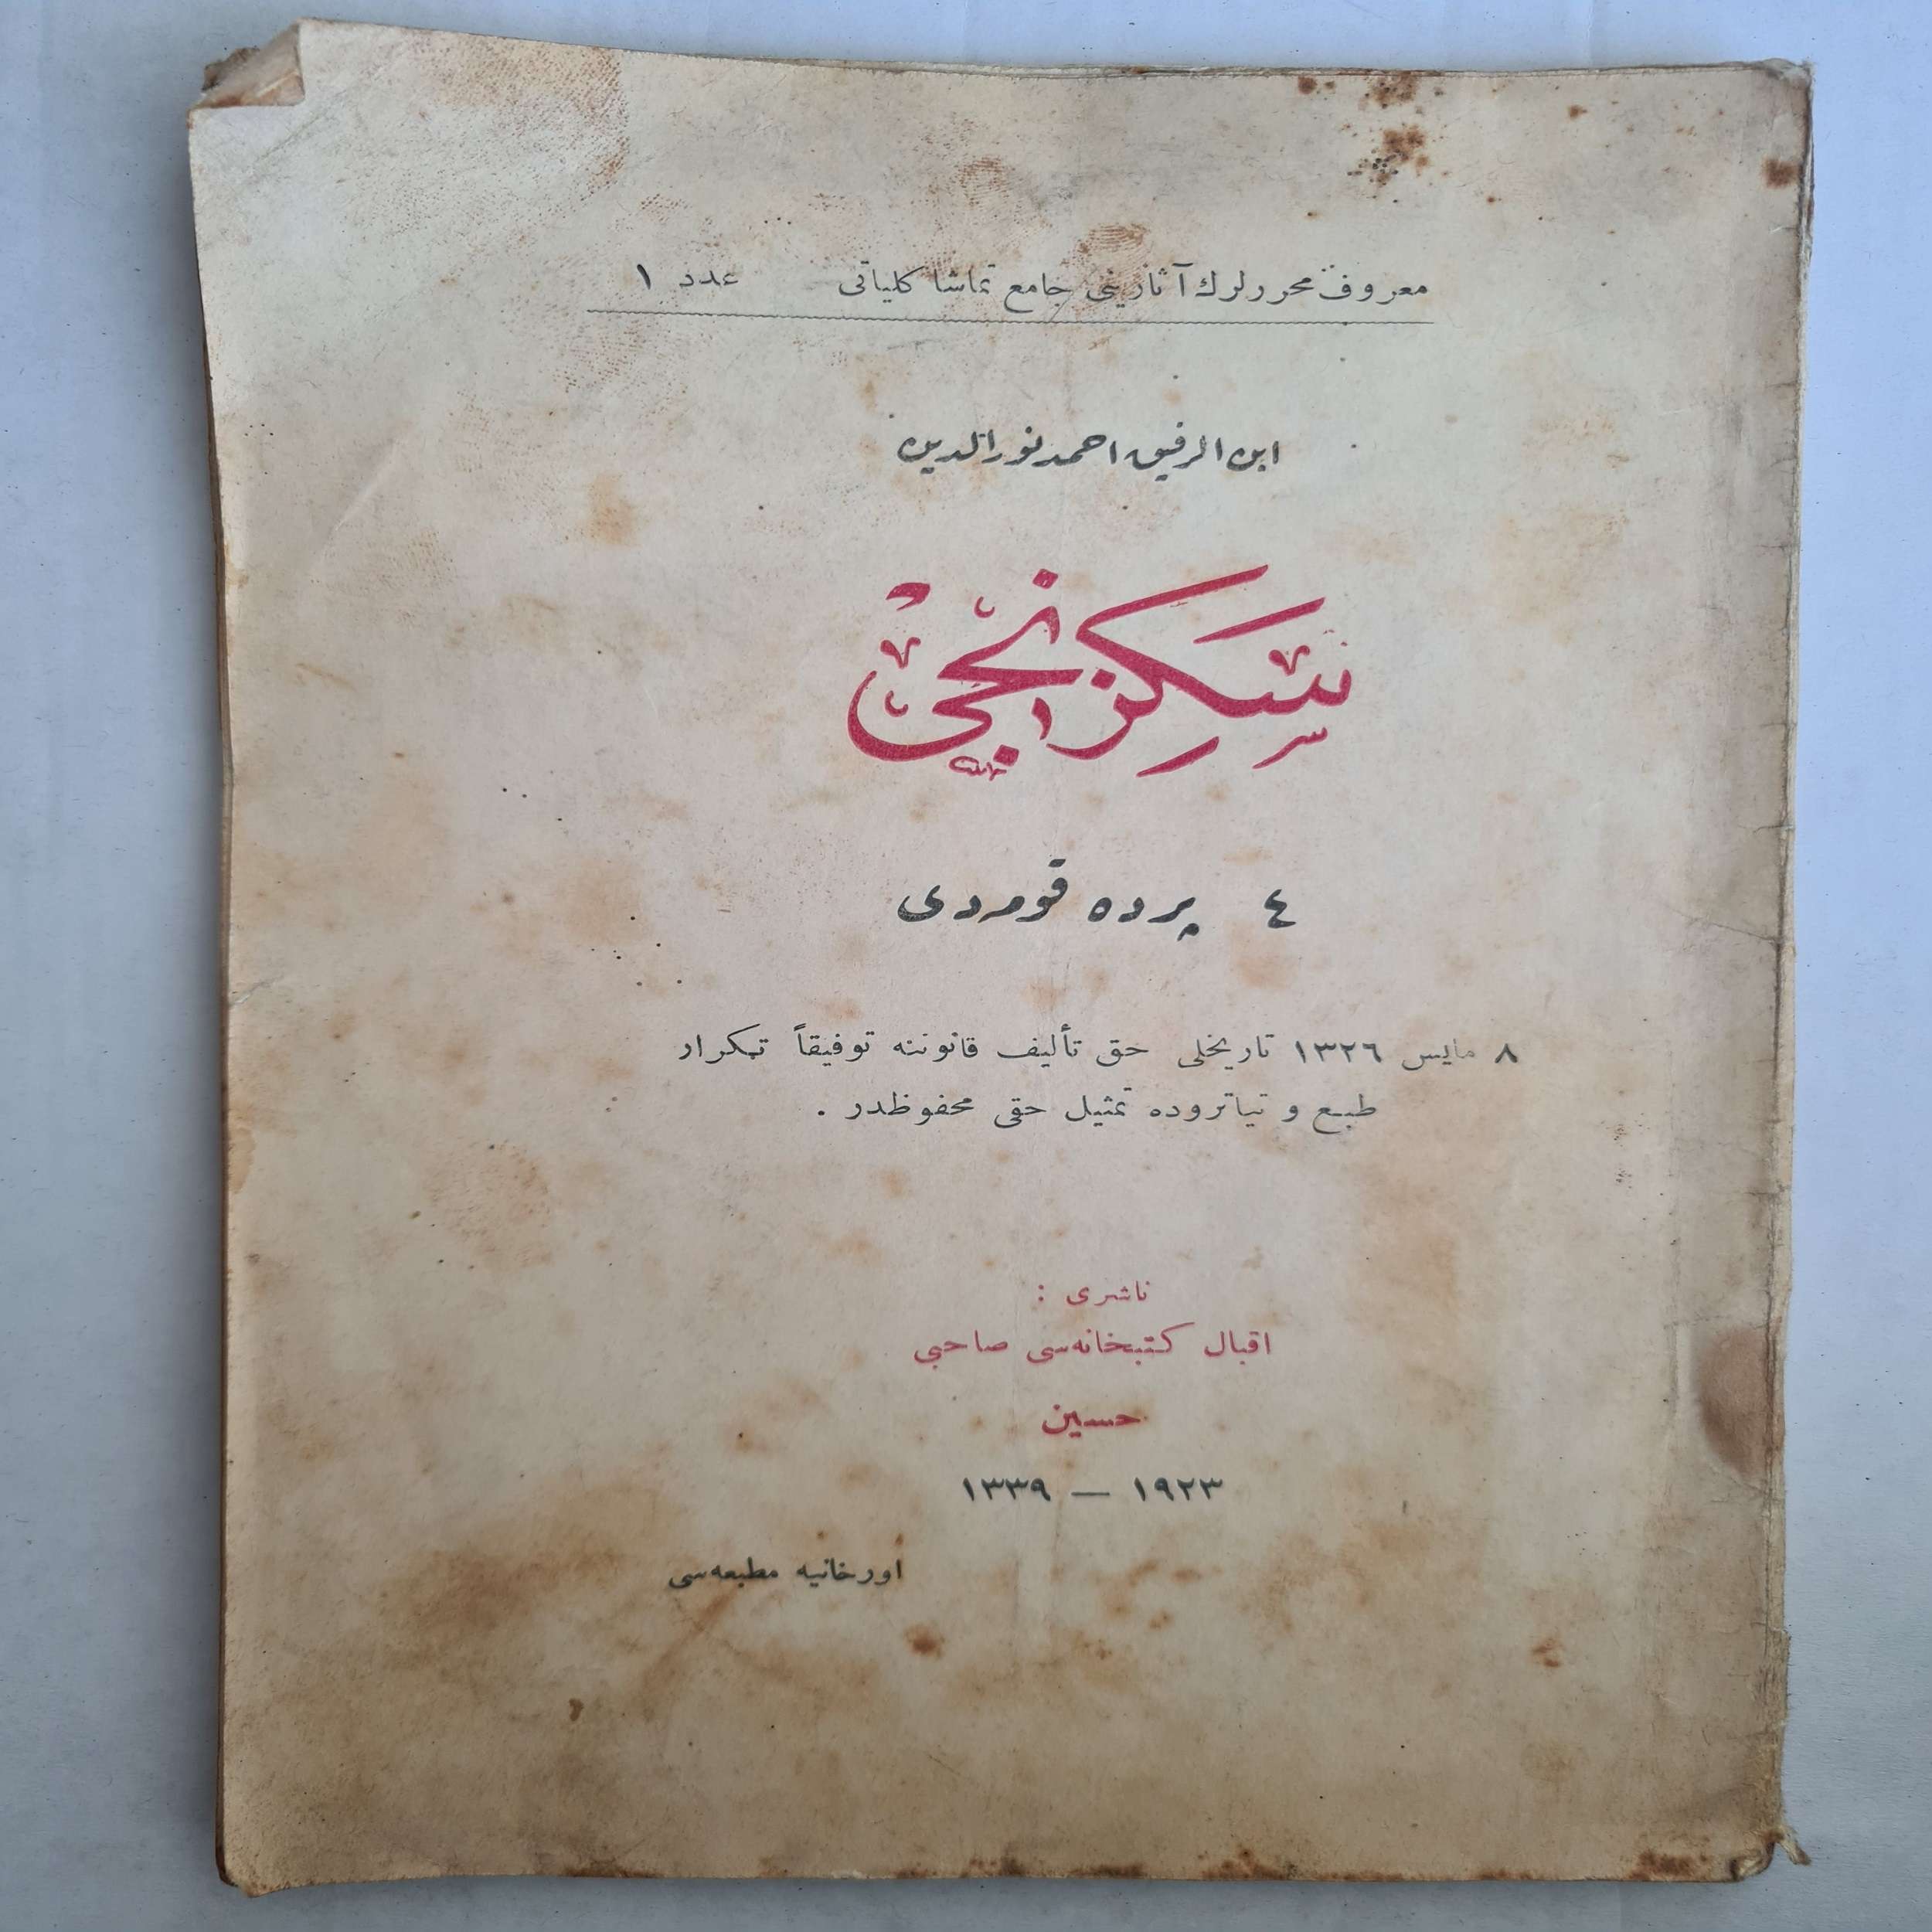 معروف محررلرك آثارينى جامع تماشا كلياتى عدد ١
ابن الرفيق احمد نورالدين
سكزنجى
٤ پرده قومدى
٨ مايس ١٣٢٦ تاريخلى حق تأليف قانوننه توفيقاً تكرار
طبع و تياتروده تمثيل حقى محفوظدر .
ناشرى :
اقبال كتبخانه‌سى صاحبى
حسين
١٩٢٣ — ١٣٣٩
اورخانيه مطبعه‌سى